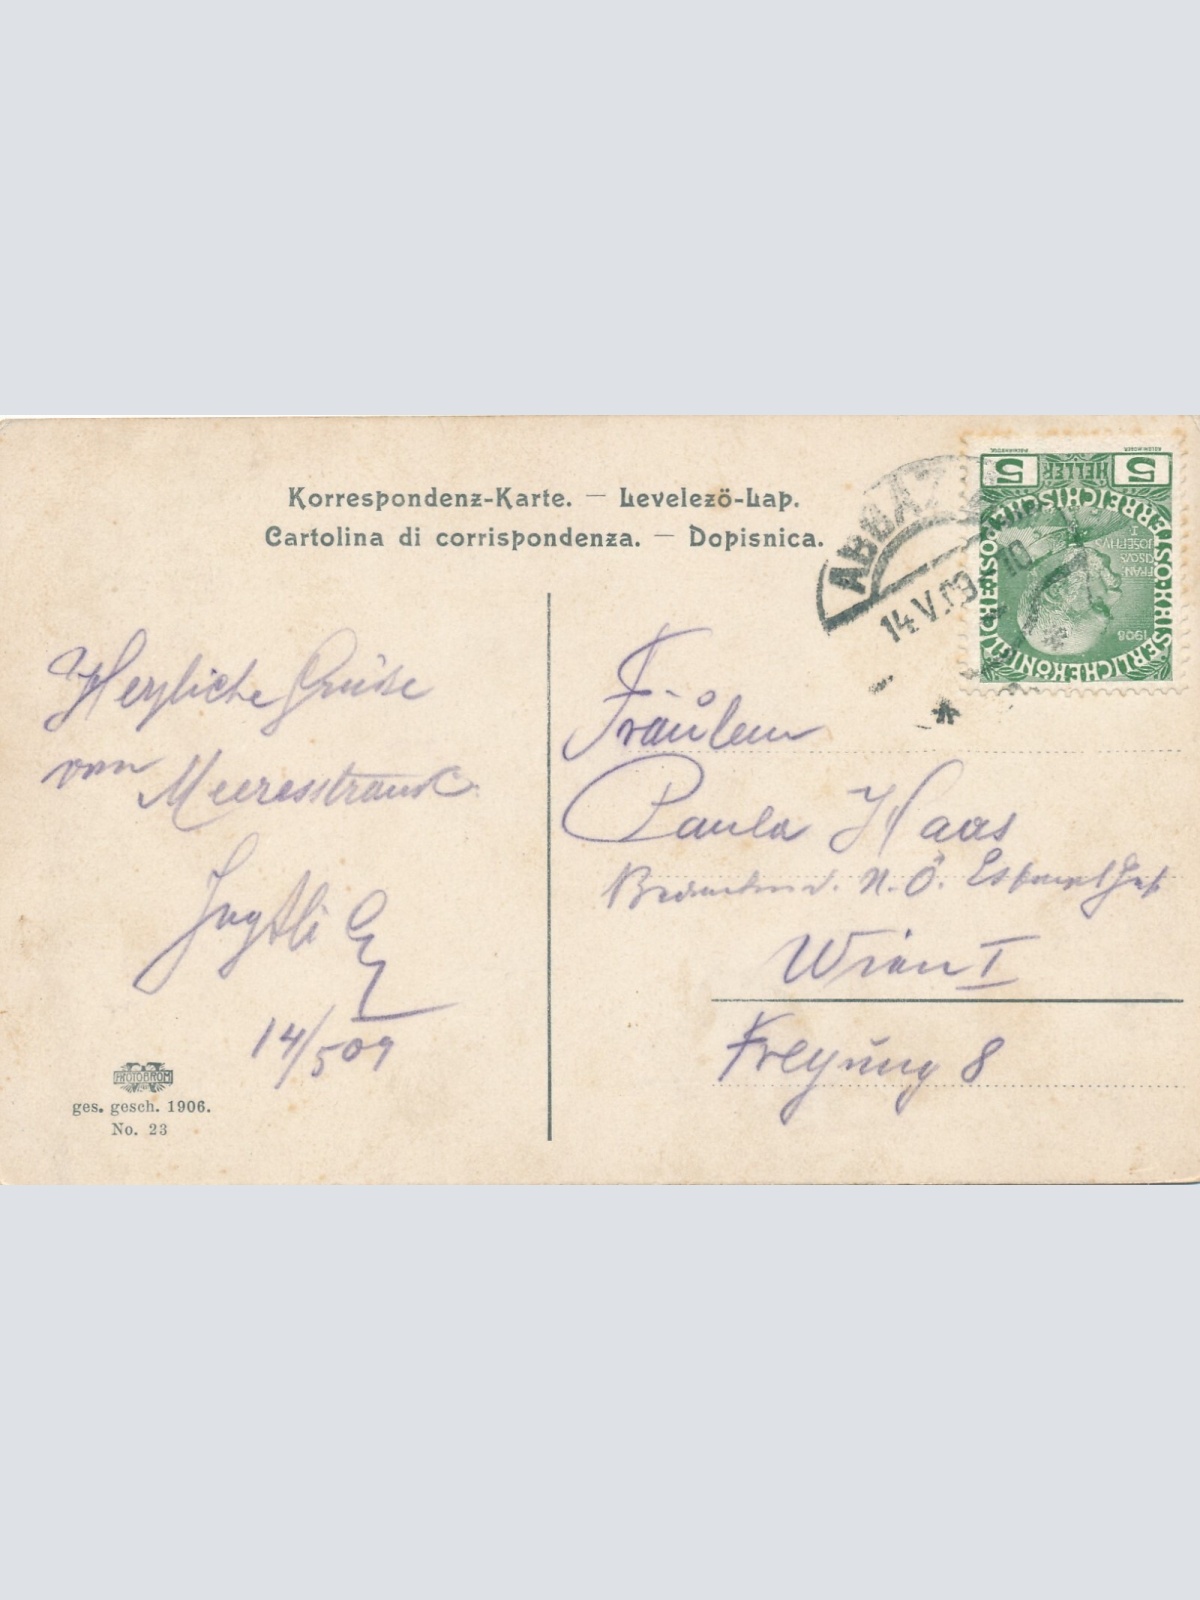 Korrespondenz-Karte. — Levelezö-Lap.
Cartolina di corrispondenza. — Dopisnica.
ABBAZ
14.V.09 10
5 HELLER 5
KAISERLICHE KÖNIGLICHE ÖSTERREICHISCHE
FRAN
CISCVS
JOSEPHVS
1908
Herzliche Grüße
vom Meeresstrande
14/5 09
PHOTOBROM
ges. gesch. 1906.
No. 23
Fräulein
Paula Haas
Beamten d. N.Ö. Escompt Ges
Wien I
Freyung 8